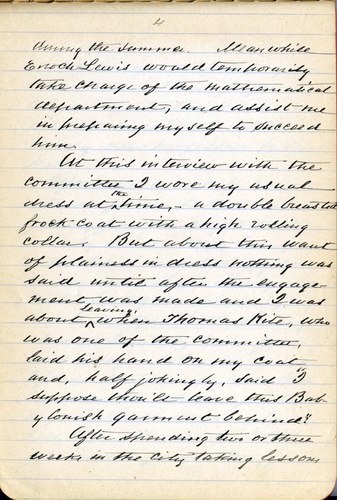 4
during the summer. Meanwhile
Enoch Lewis would temporarily
take charge of the mathematical
department, and assist me
in preparing myself to succeed
him.
At this interview with the
committee I wore my usual
dress at the time, - a double breasted
frock coat with a high rolling
collar. But about this want
of plainess in dress nothing was
said until after the engage-
ment was made and I was
about leaving, when Thomas Kite, who
was one of the committee,
laid his hand on my coat
and, half jokingly, said "I
suppose thou'lt leave this Bab-
ylonish garment behind."
After spending two or three
weeks in the city taking lessons